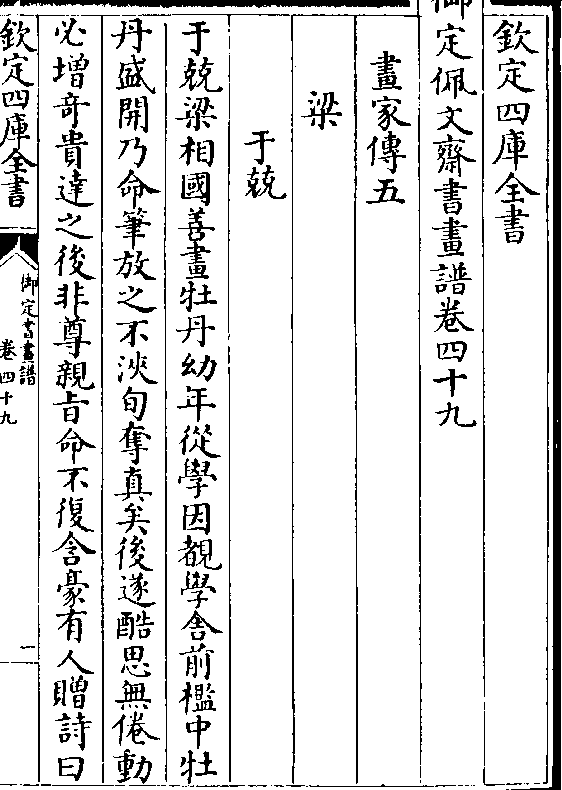 欽定四庫全書
御定佩文齋書畫譜卷四十九
畫家傳五
梁
于兢
于兢梁相國善畫牡丹幼年從學因覩學舍前檻中牡
丹盛開乃命筆放之不浹旬奪真矣後遂酷思無倦動
必增奇貴達之後非尊親旨命不復含豪有人贈詩曰
欽定四庫全書
御定書畫譜
卷四十九
一